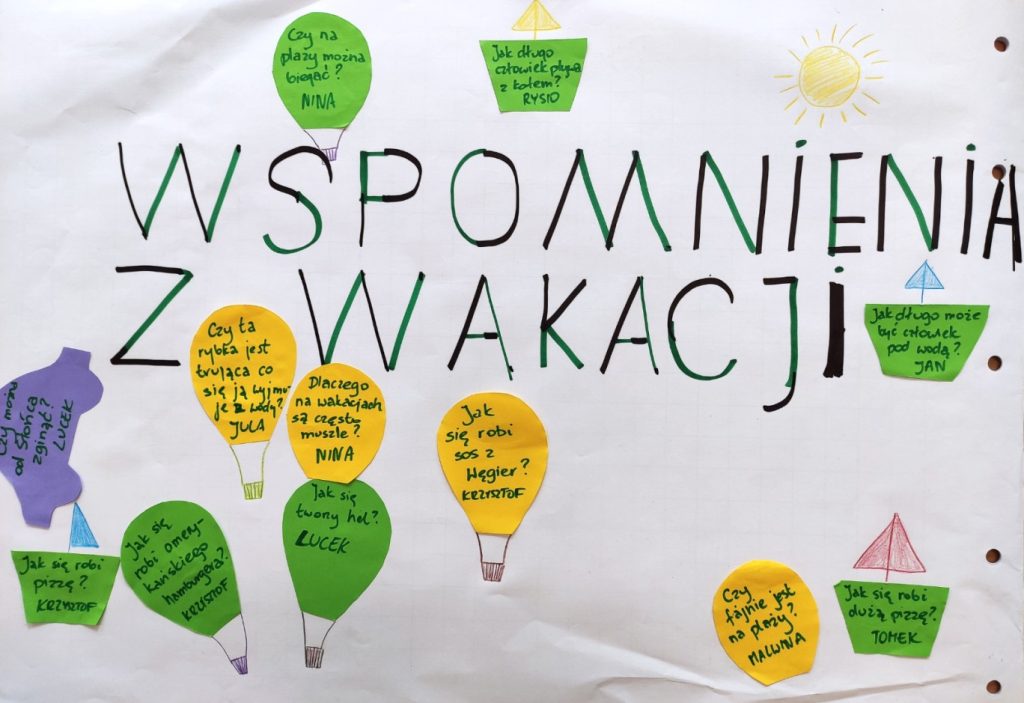 Czy na
plaży można
biegać?
NINA
Jak długo
człowiek pływa
z kołem?
RYSIO
WSPOMNIENIA
Z WAKACJI
Jak długo może
być człowiek
pod wodą?
JAN
Czy ta
rybka jest
trująca co
się ją wyjmu-
je z wody?
JULA
Dlaczego
na wakacjach
są często
muszle?
NINA
Jak
się robi
sos z
Węgier?
KRZYSZTOF
Czy można
od słońca
zginąć?
LUCEK
Jak się robi
pizzę?
KRZYSZTOF
Jak się
robi amery-
kańskiego
hamburgera?
KRZYSZTOF
Jak się
tworzy hel?
LUCEK
Czy
fajnie jest
na plaży?
MALWINA
Jak się robi
dużą pizzę?
TOMEK